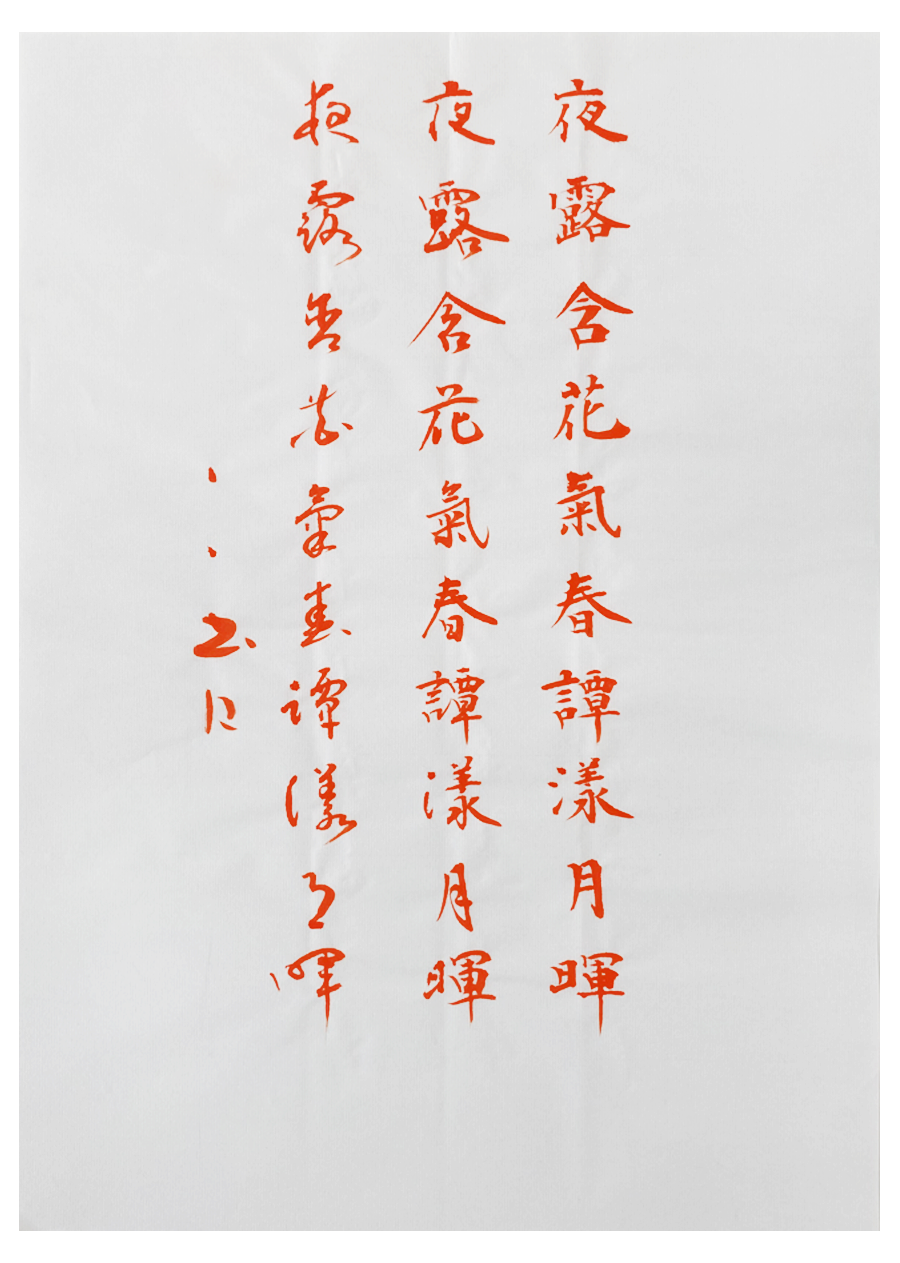 夜露含花氣春譚漾月暉
夜露含花氣春譚漾月暉
夜露含花氣春譚漾月暉